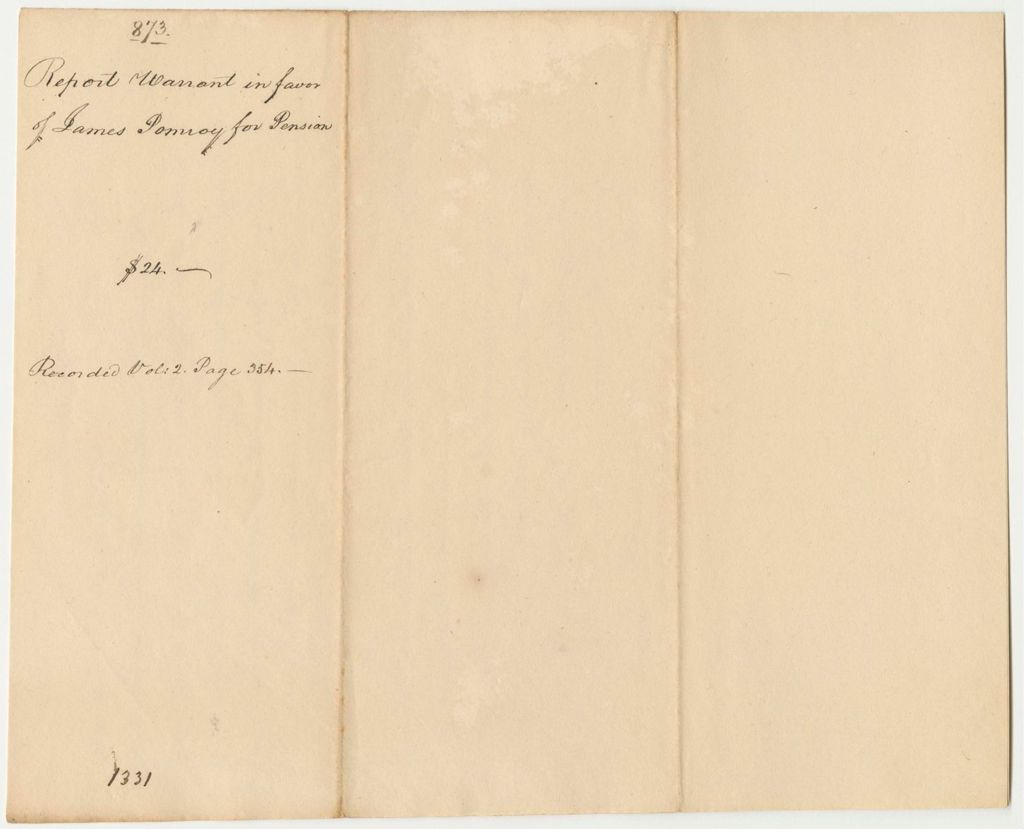 873.
Report Warrant in favor
of James Pomroy for Pension
$24. —
Recorded Vol: 2. Page 354. —
1331